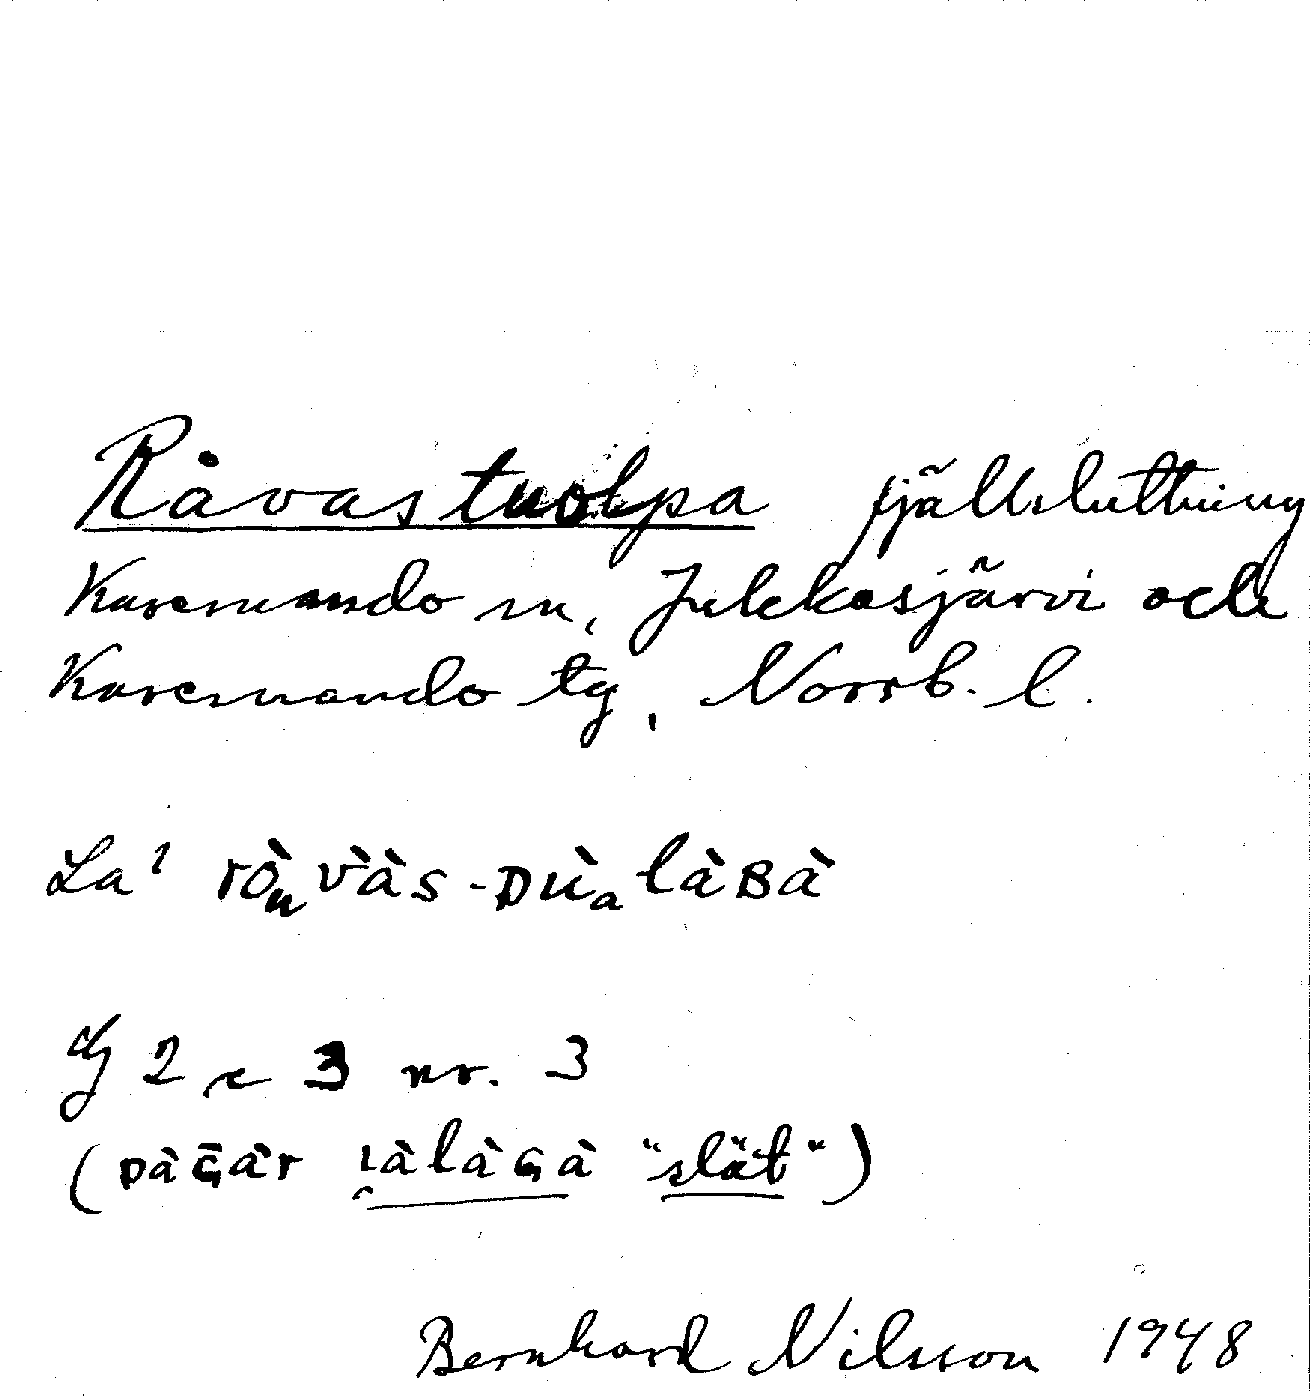 Råvastuolpa fjällsluttning
Karesuando sn, Jukkasjärvi och
Karesuando tg, Norrb. l.
La¹ ròᵤvàs-Dùₐlàʙà
G 2 c 3 nr. 3
(ᴅàɢ̄àr i̯àlàɢà "slät")
Bernhard Nilsson 1948